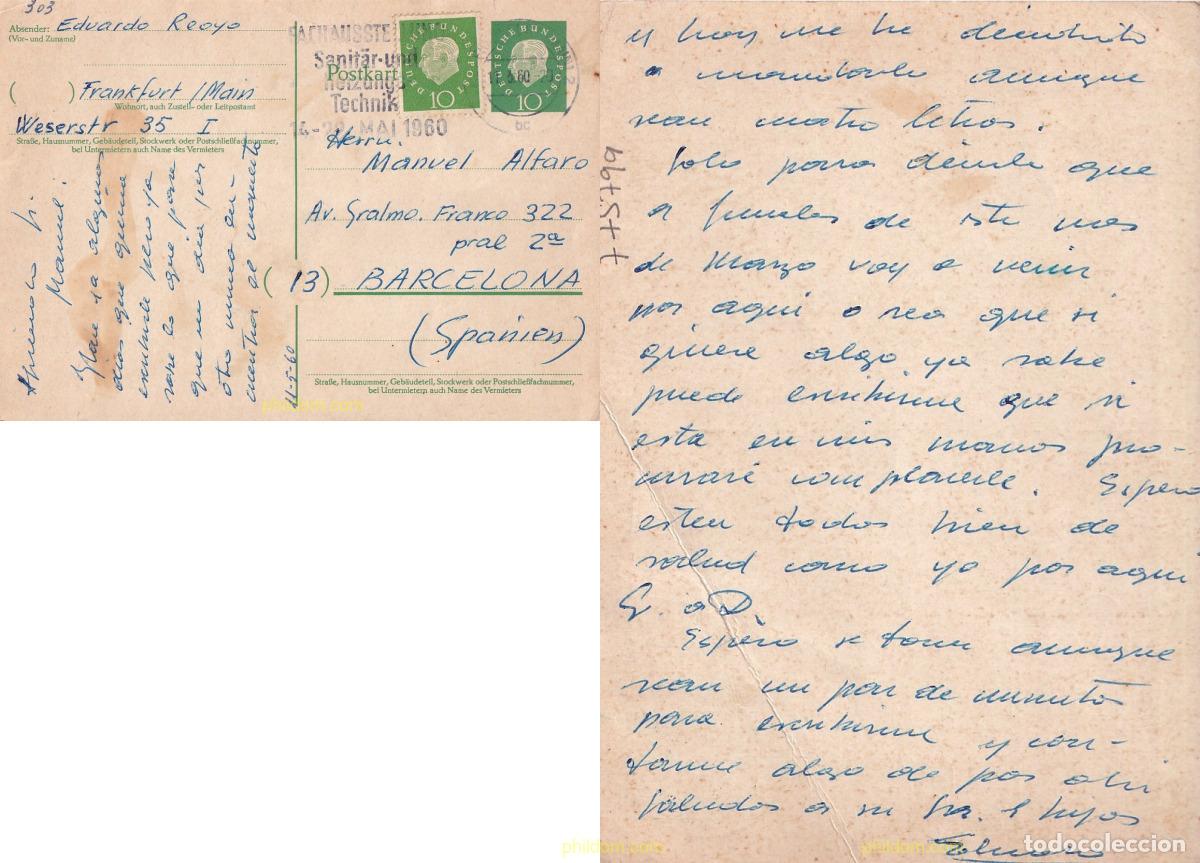 303
Absender: Eduardo Reoyo
(Vor- und Zuname)
( ) Frankfurt/Main
Wohnort, auch Zustell- oder Leitpostamt
Weserstr 35 I
Straße, Hausnummer, Gebäudeteil, Stockwerk oder Postschließfachnummer,
bei Untermietern auch Name des Vermieters
Sanitär- und
Heizungs
Technik
14-20. MAI 1960
Postkart
DEUTSCHE BUNDESPOST
10
DEUTSCHE BUNDESPOST
10
60
bc
Herrn.
Manuel Alfaro
Av. Gralmo. Franco 322
pral 2ª
(13) BARCELONA
(Spanien)
Straße, Hausnummer, Gebäudeteil, Stockwerk oder Postschließfachnummer,
bei Untermietern auch Name des Vermieters
11-5-60
Manuel:
ya algunos
dias que queria
escribirle pero ya
sabe lo que pasa
que un dia por
otro
al momento
y hoy me he decidido
a mandarle aunque
sean cuatro letras.
Solo para decirle que
a finales de este mes
de Marzo voy a venir
por aqui o sea que si
quiere algo ya sabe
puede escribirme que si
esta en mis manos pro-
curaré complacerle. Espero
esten todos bien de
salud como yo por aqui
G. a D.
Espero se tome aunque
sean un par de minutos
para escribirme y con-
tarme algo de por ahi
Saludos a su Sra. e hijos
Eduardo
775799
phildom.com
phildom.com
todocoleccion